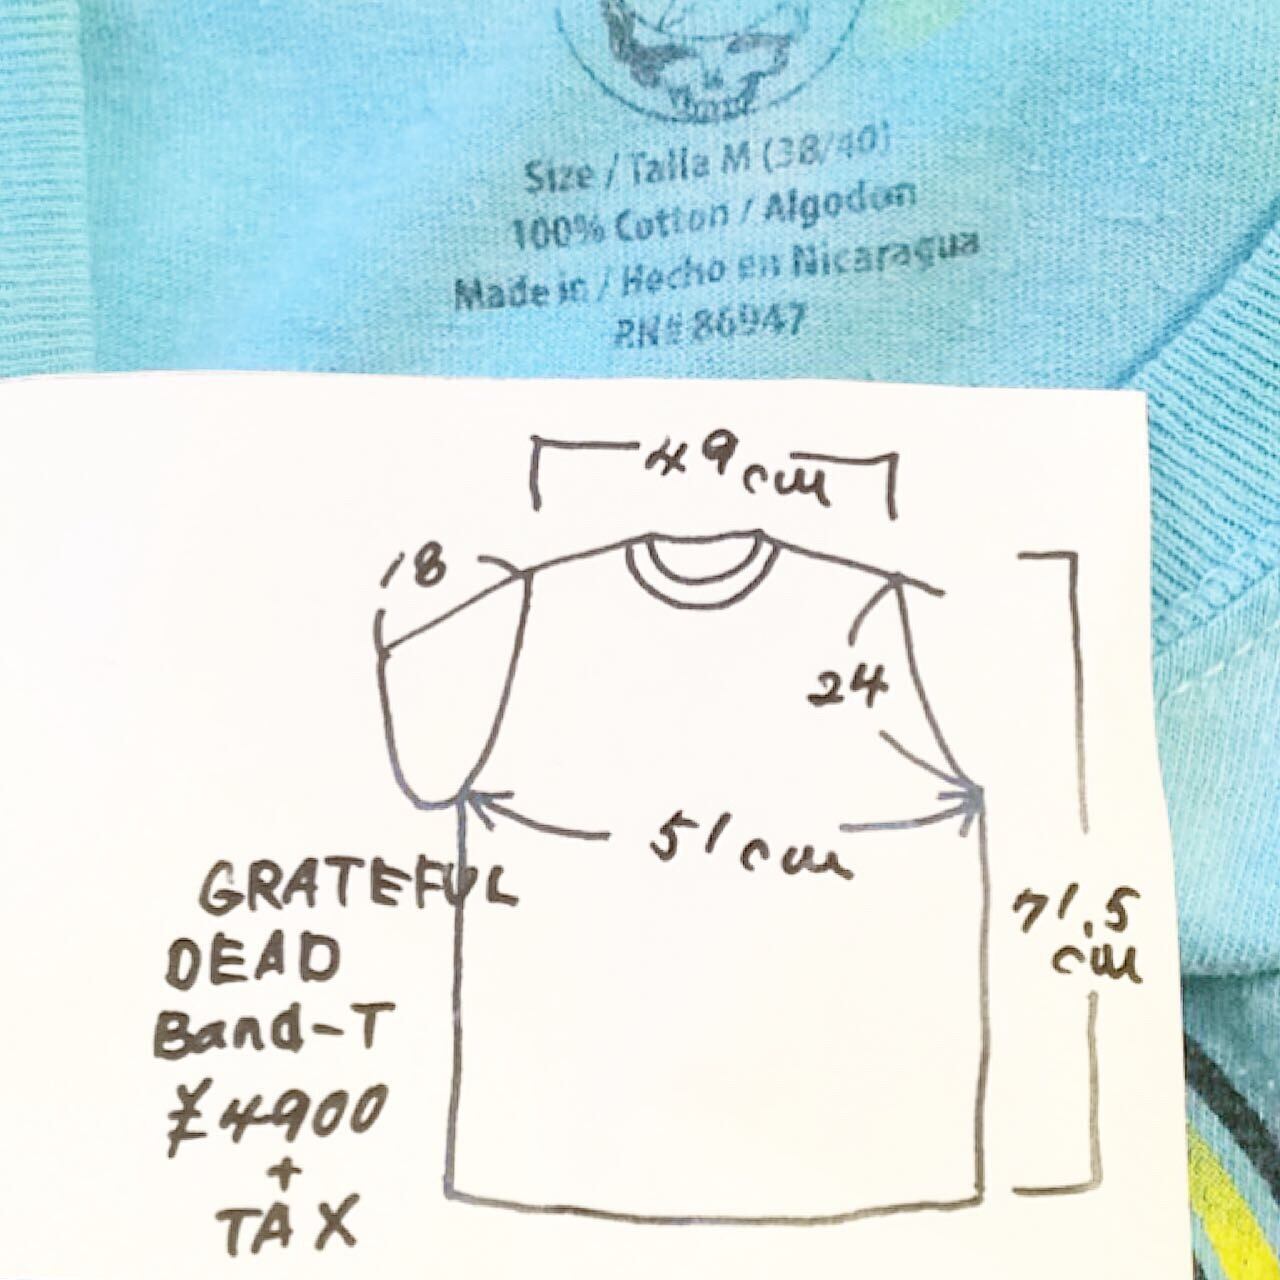 Size / Talla M (38/40)
100% Cotton / Algodon
Made in / Hecho en Nicaragua
RN# 86947
49cm
18
24
51cm
71.5
cm
GRATEFUL
DEAD
Band-T
¥4900
+
TAX